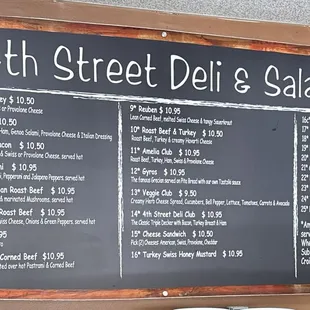 th Street Deli & Sala
ey $ 10.50
or Provolone Cheese
10.50
Ham, Genoa Salami, Provolone Cheese & Italian Dressing
acon $ 10.50
& Swiss or Provolone Cheese, served hot
mi $ 10.95
, Pepperoni and Jalapeno Peppers, served hot
an Roast Beef $ 10.95
& marinated Mushrooms, served hot
Roast Beef $ 10.95
wiss Cheese, Onions & Green Peppers, served hot
.95
Corned Beef $ 10.95
ted over hot Pastrami & Corned Beef
9* Reuben $ 10.95
Lean Corned Beef, melted Swiss Cheese & tangy Sauerkraut
10* Roast Beef & Turkey $ 10.50
Roast Beef, Turkey & creamy Havarti Cheese
11* Amelia Club $ 10.95
Roast Beef, Turkey, Ham, Swiss & Provolone Cheese
12* Gyros $ 10.95
The famous Grecian served on Pita Bread with our own Tzatziki sauce
13* Veggie Club $ 9.50
Creamy Herb Cheese Spread, Cucumbers, Bell Pepper, Lettuce, Tomatoes, Carrots & Avocado
14* 4th Street Deli Club $ 10.95
The Classic Triple Decker with Bacon, Turkey Breast & Ham
15* Cheese Sandwich $ 10.50
Pick (2) Cheeses: American, Swiss, Provolone, Cheddar
16* Turkey Swiss Honey Mustard $ 10.95
17*
18*
19*
20*
21*
22*
23*
24*
25*